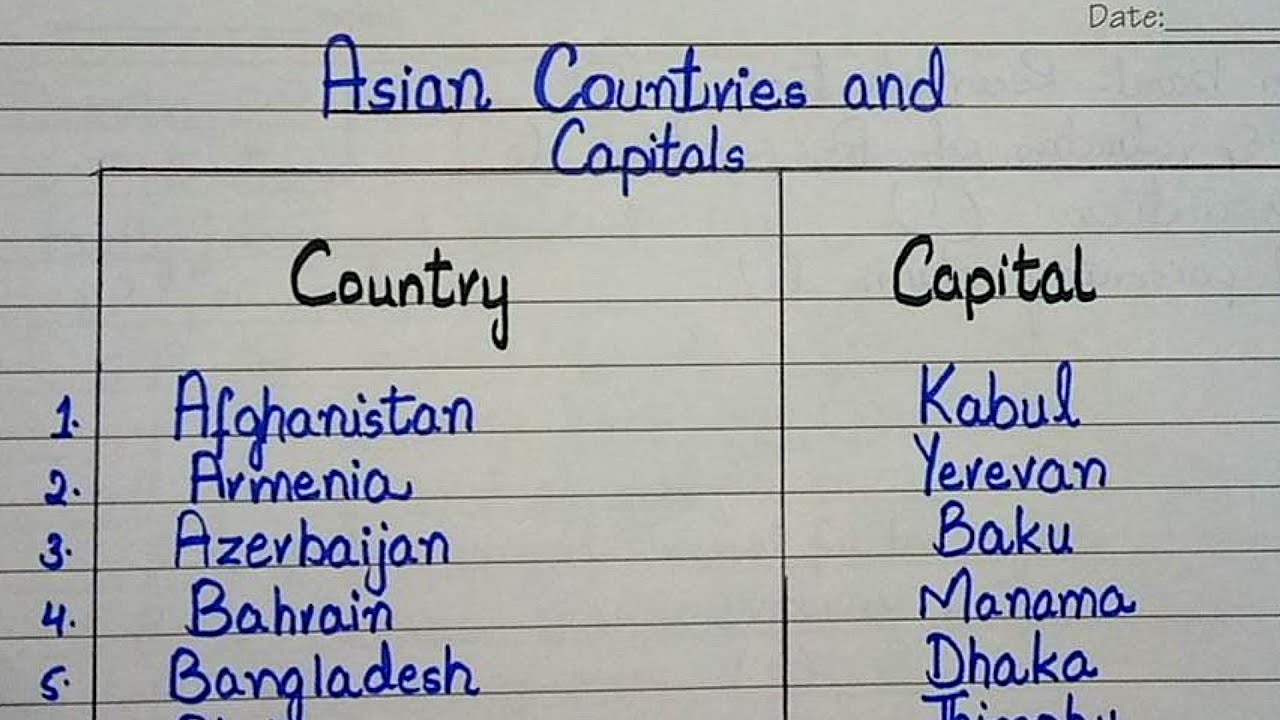 Date:
Asian Countries and
Capitals
Country Capital
1. Afghanistan Kabul
2. Armenia Yerevan
3. Azerbaijan Baku
4. Bahrain Manama
5. Bangladesh Dhaka